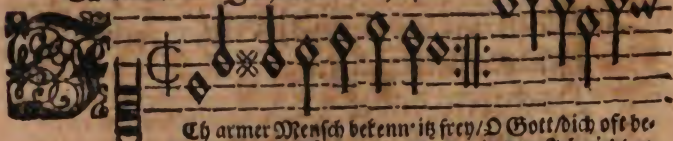 Ch armer Mensch bekenn· itz frey/ O Gott/ dich oft be-